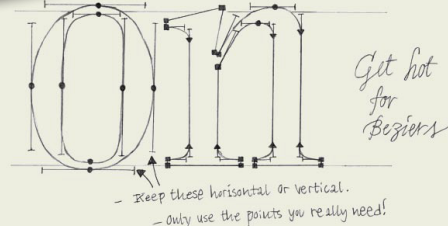 On
Get hot
for
Beziers
- Keep these horisontal or vertical.
- Only use the points you really need!